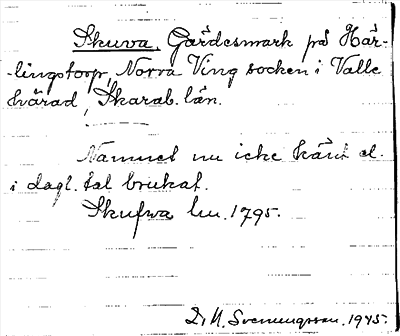 Skuva, Gärdesmark på Här-
-lingstorp, Norra Ving socken i Valle
härad, Skarab. län.
Namnet nu icke känt el.
i dagl. tal brukat.
Skufwa lm. 1795.
D. N. Svenungsson. 1945.